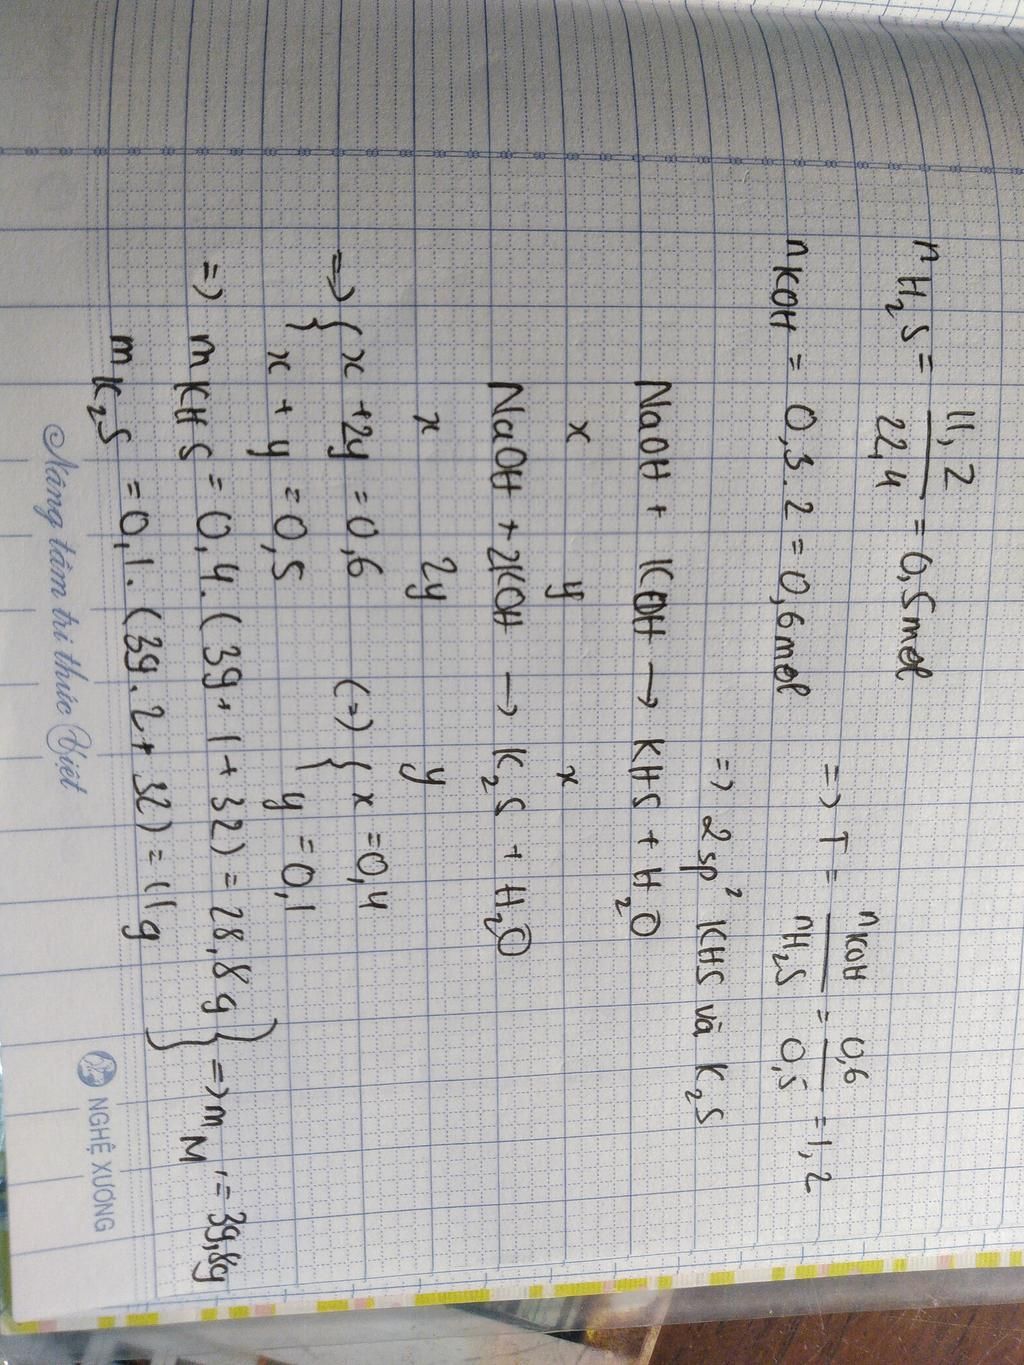 nH₂S = 11,2/22,4 = 0,5 mol
nKOH = 0,3 . 2 = 0,6 mol
=> T = nKOH/nH₂S = 0,6/0,5 = 1,2
=> 2 sp² KHS và K₂S
NaOH + KOH → KHS + H₂O
x y x
NaOH + 2KOH → K₂S + H₂O
x 2y y
=> { x + 2y = 0,6 (=) { x = 0,4
x + y = 0,5 y = 0,1
=> mKHS = 0,4 . (39 + 1 + 32) = 28,8g } => mM' = 39,8g
mK₂S = 0,1 . (39 . 2 + 32) = 11g
Nâng tầm tri thức Việt
NGHỆ XƯƠNG